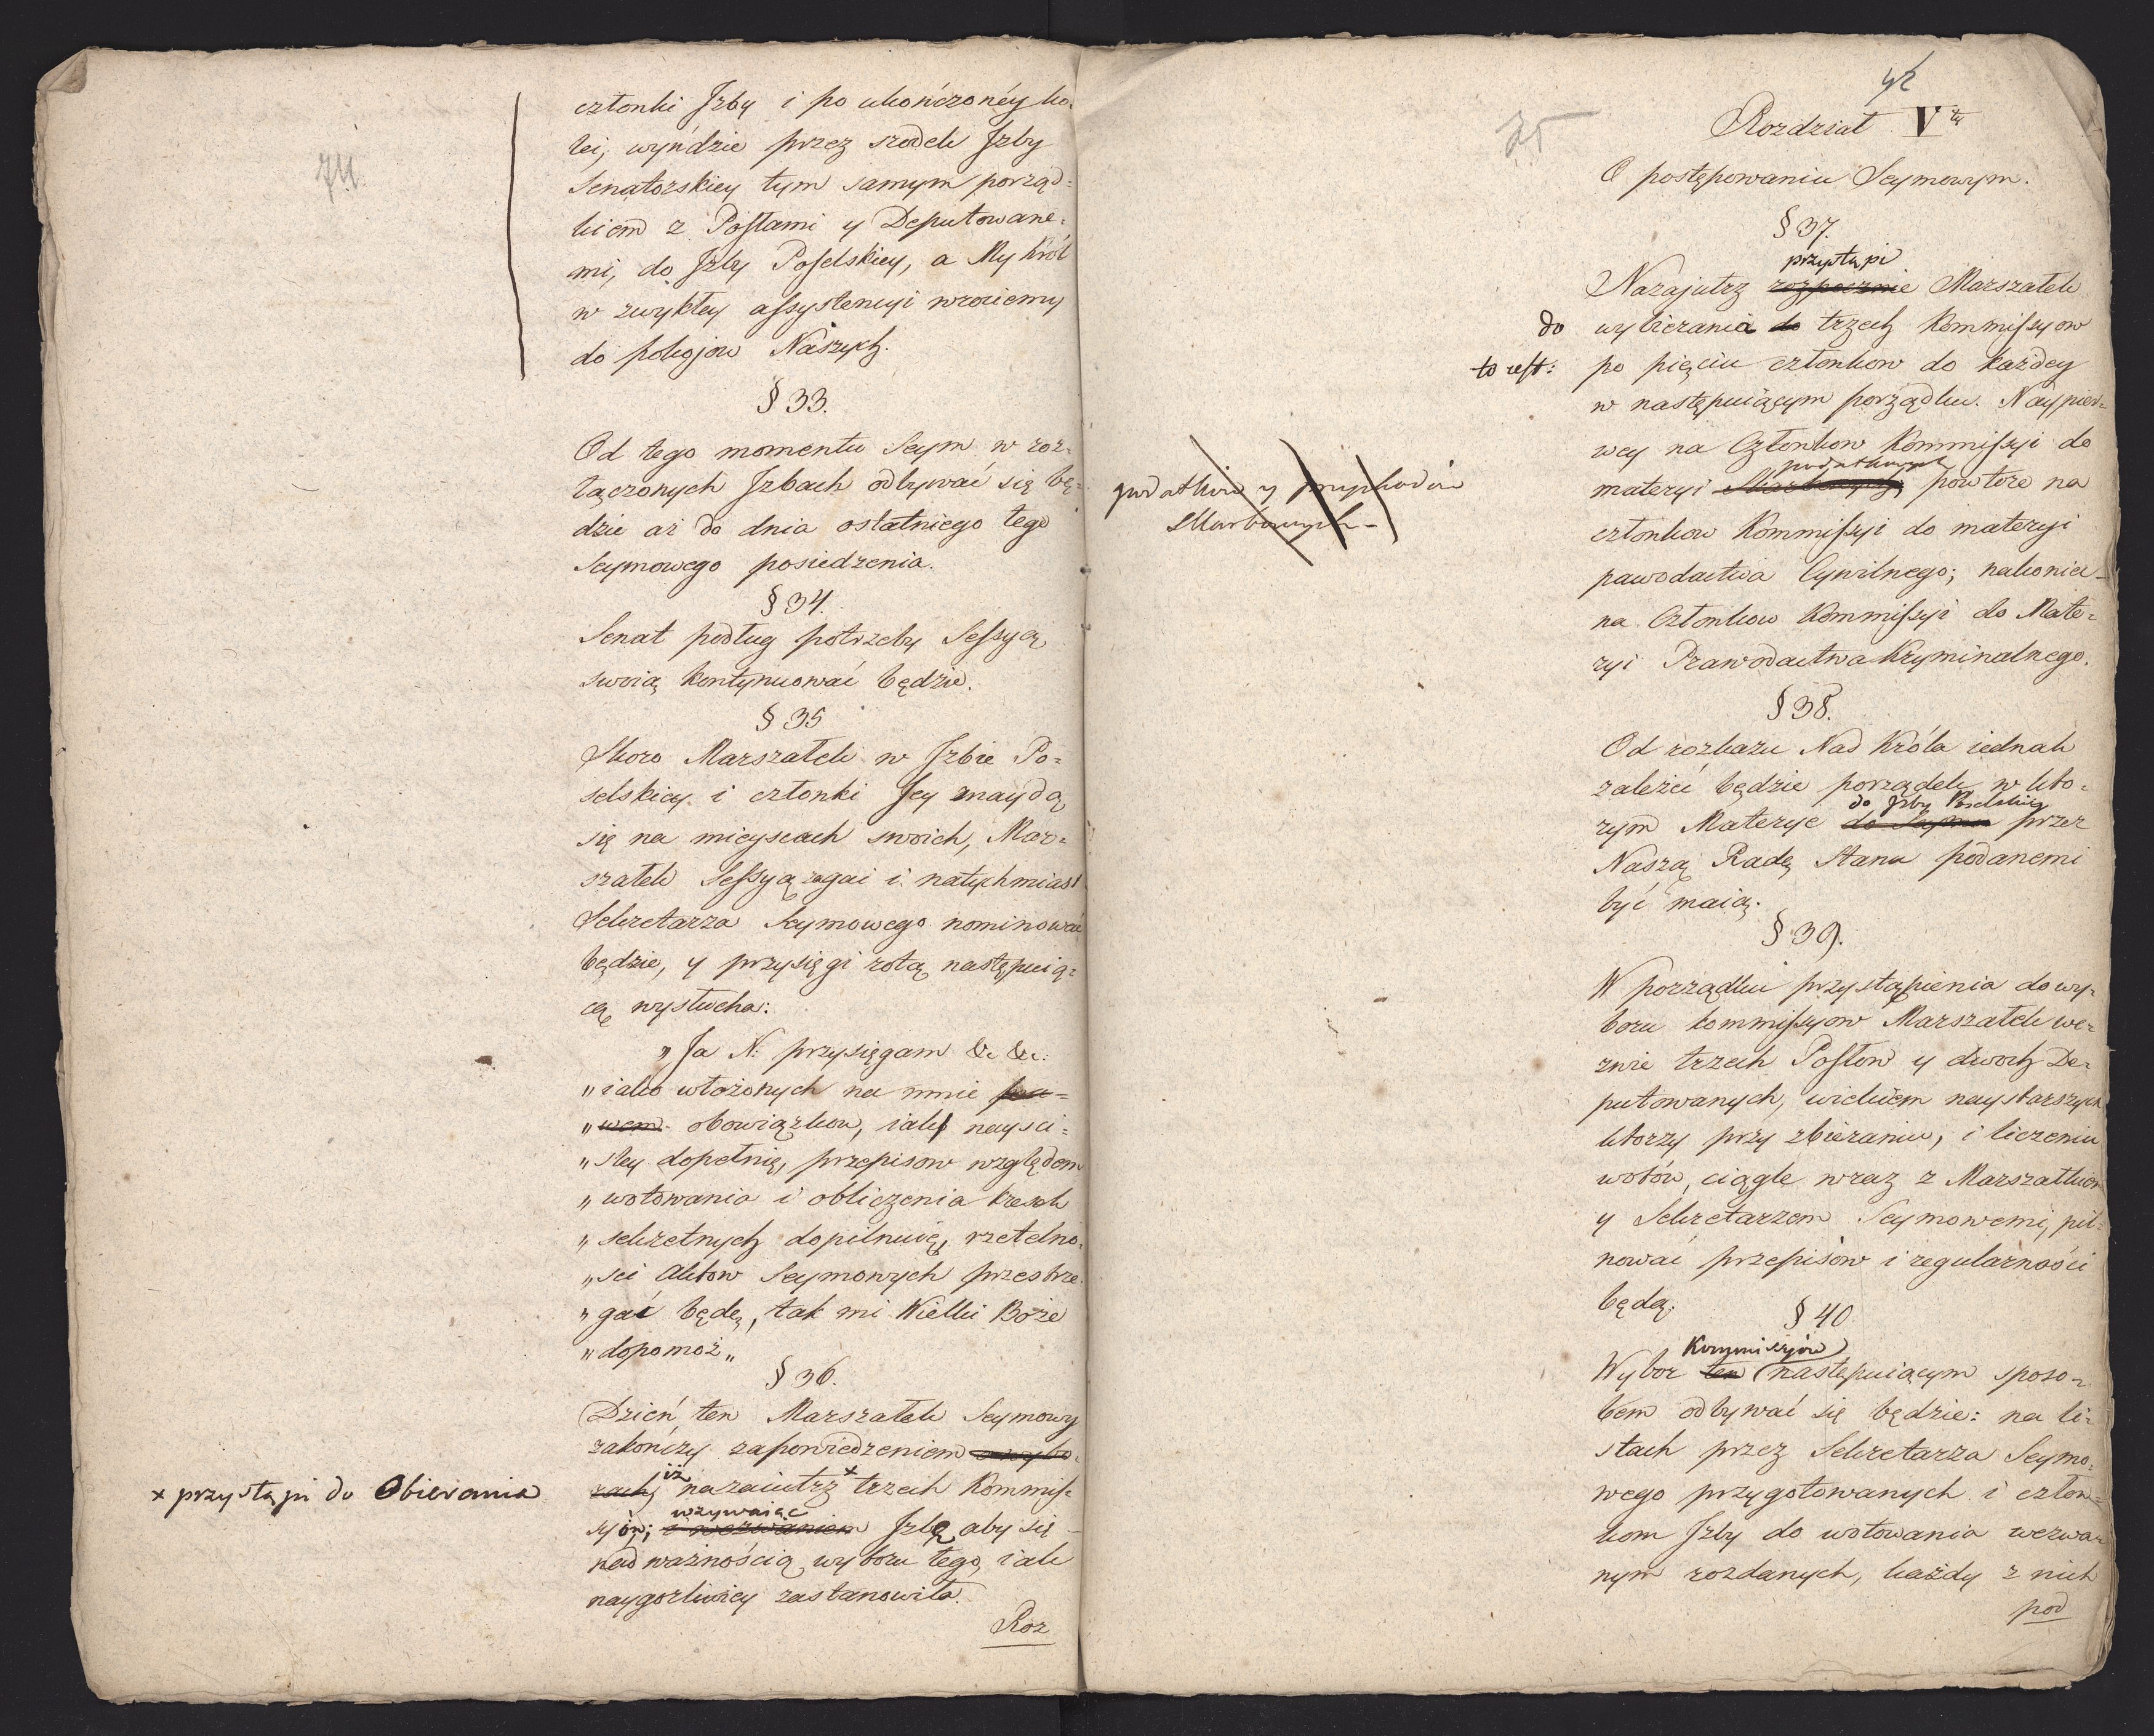 74
członki Jzby i po ukończonéy ko-
lei, wyńdzie przez srodek Jzby
Senatorskiey tym samym porząd=
kiem z Posłami y Deputowane=
mi, do Jzby Poselskiey, a My Król
w zwykłey assystencyi wrociemy
do pokojow Naszych.
§ 33.
Od tego momentu Seym w roz=
łączonych Jzbach odbywać się bę=
dzie aż do dnia ostatniego tego
Seymowego posiedzenia.
§ 34.
Senat podług potrzeby Sessyą
swoią kontynuować będzie.
§ 35
Skoro Marszałek w Jzbie Po=
selskiey i członki Jey znaydą
się na mieyscach swoich, Mar=
szałek Sessyą zagai i natychmiast
Sekretarza Seymowego nominować
będzie, y przysięgi rotą następuią=
cą wysłucha:
„Ja N: przysięgam &c &c:
„iako włożonych na mnie pra=
„wem obowiązkow, iak naysci=
„sley dopełnię, przepisow względem
„wotowania i obliczenia kresek
„sekretnych dopilnuię, rzetelno=
„sci aktow Seymowych przestrze
„gać będę, tak mi Wielki Boże
„dopomoż„
§ 36.
Dzień ten Marszałek Seymowy
zakończy zapowiedzeniem o wybo=
rach iż nazaiutrz + trzech Kommis=
syów; i wezwaniem wzywaiąc Jzbę aby się
nad ważnością wyboru tego, iak
naygorliwiey zastanowiła.
+ przystąpi do Obierania
Roz
42
75
Rozdział V ty
O postępowaniu Seymowym.
§ 37.
przystąpi
Nazajutrz rozpocznie Marszałek
do wybierania do trzech Kommissyow
to iest: po pięciu członkow do każdey
w następuiącym porządku. Naypier=
wey na Członkow Kommissyi do
podatkowych
materyi Skarbowych, powtore na
członkow Kommissyi do materyi
pawodactwa Cywilnego; nakoniec
na Członkow Kommissyi do Mate=
ryi Prawodactwa Kryminalnego.
podatków y przychodów
Skarbowych -
§ 38.
Od rozkazu Nad Króla iednak
zależeć będzie porządek w kto=
do Jzby Poselskiey
rym Materye do Seymu przez
Naszą Radę Stanu podanemi
być maią.
§ 39.
W porządku przystąpienia do wy=
boru kommissyow Marszałek we=
zwie trzech Posłow y dwoch De=
putowanych, wiekiem naystarszych
ktorzy przy zbieraniu, i liczeniu
wotów, ciągle wraz z Marszałkiem
y Sekretarzem Seymowemi, pil=
nować przepisów i regularności
będą.
§ 40
Kommissyiów
Wybor ten następuiącym sposo=
bem odbywać się będzie: na li=
stach przez Sekretarza Seymo=
wego przygotowanych i człon=
kom Jzby do wotowania wezwa=
nym rozdanych, każdy z nich
pod